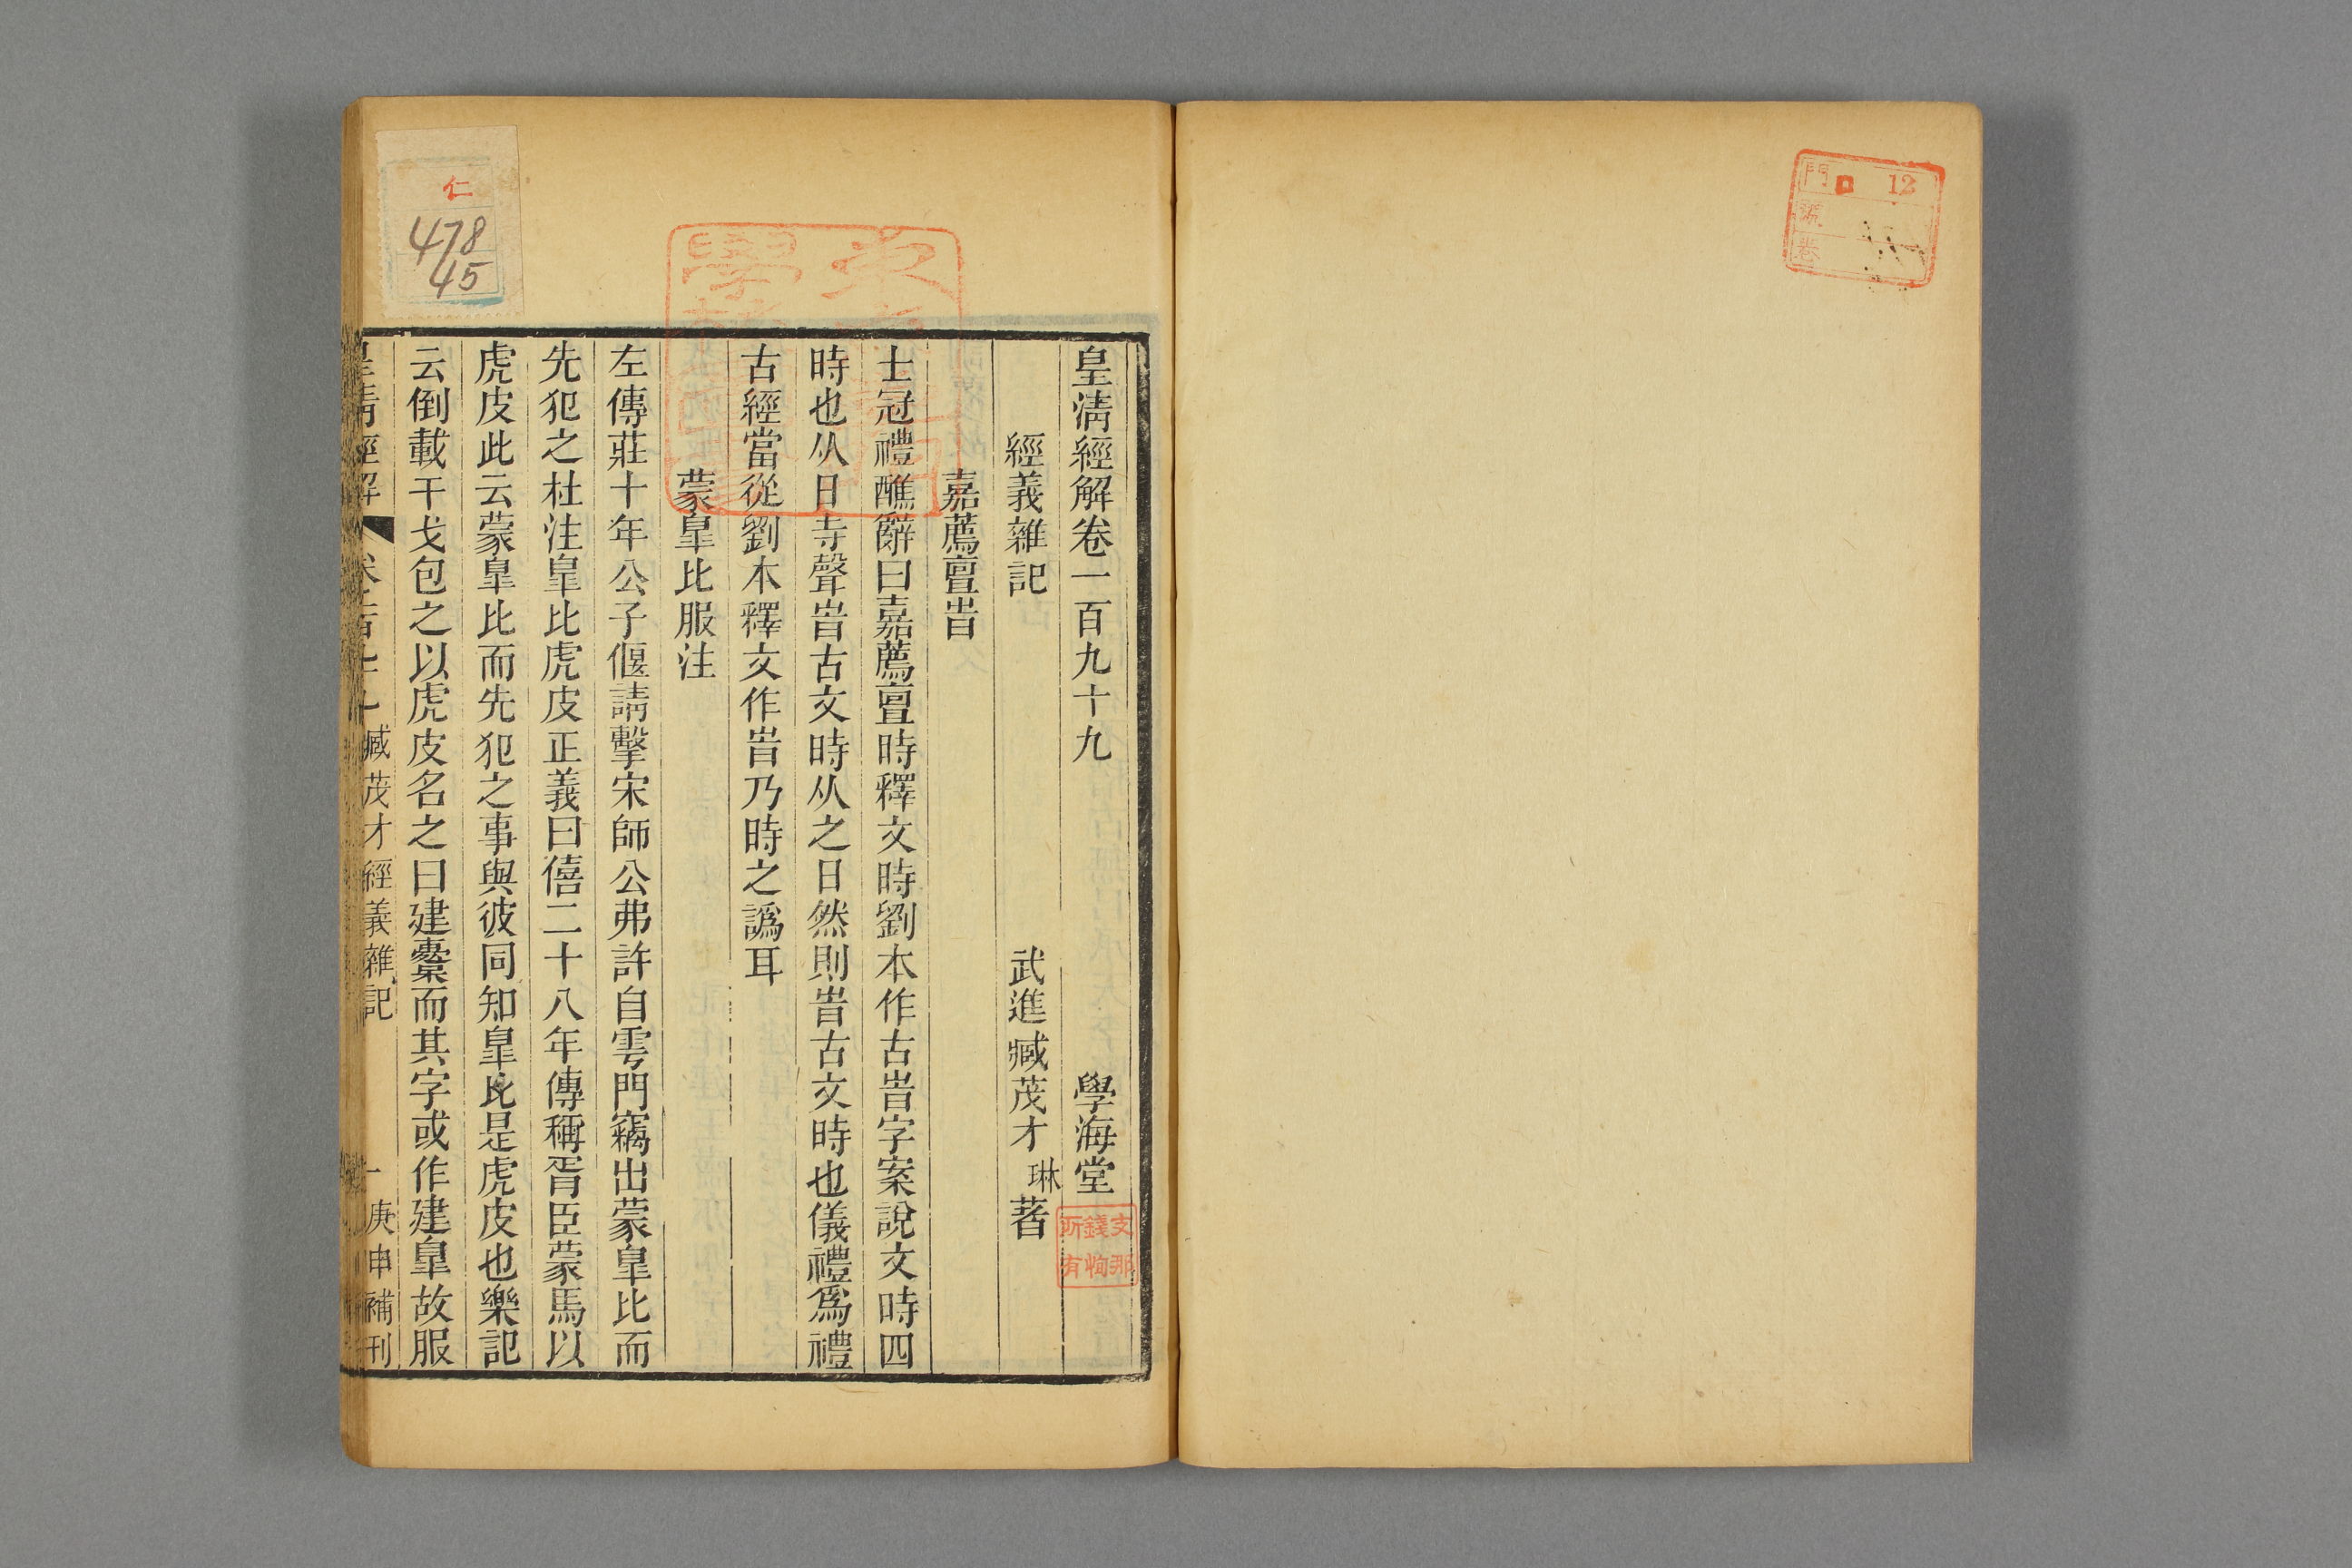 門 12
號
卷
皇清經解卷一百九十九 學海堂
支那
錢恂
所有
經義雜記 武進臧茂才琳著
嘉薦亶旹
士冠禮醮辭曰嘉薦亶時釋文時劉本作古旹字案說文時四
時也从日寺聲旹古文時从之日然則旹古文時也儀禮爲禮
古經當從劉本釋文作旹乃時之譌耳
蒙臯比服注
左傳莊十年公子偃請擊宋師公弗許自雩門竊出蒙臯比而
先犯之杜注臯比虎皮正義曰僖二十八年傳稱胥臣蒙馬以
虎皮此云蒙臯比而先犯之事與彼同知臯比是虎皮也樂記
云倒載干戈包之以虎皮名之曰建櫜而其字或作建臯故服
皇清經解 臧茂才經義雜記 一 庚申補刊
仁
478
45